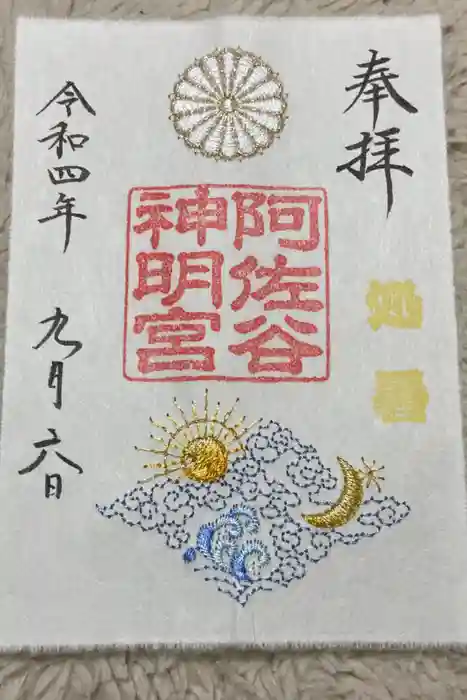 奉拝
処暑
阿佐谷
神明宮
令和四年 九月 六日